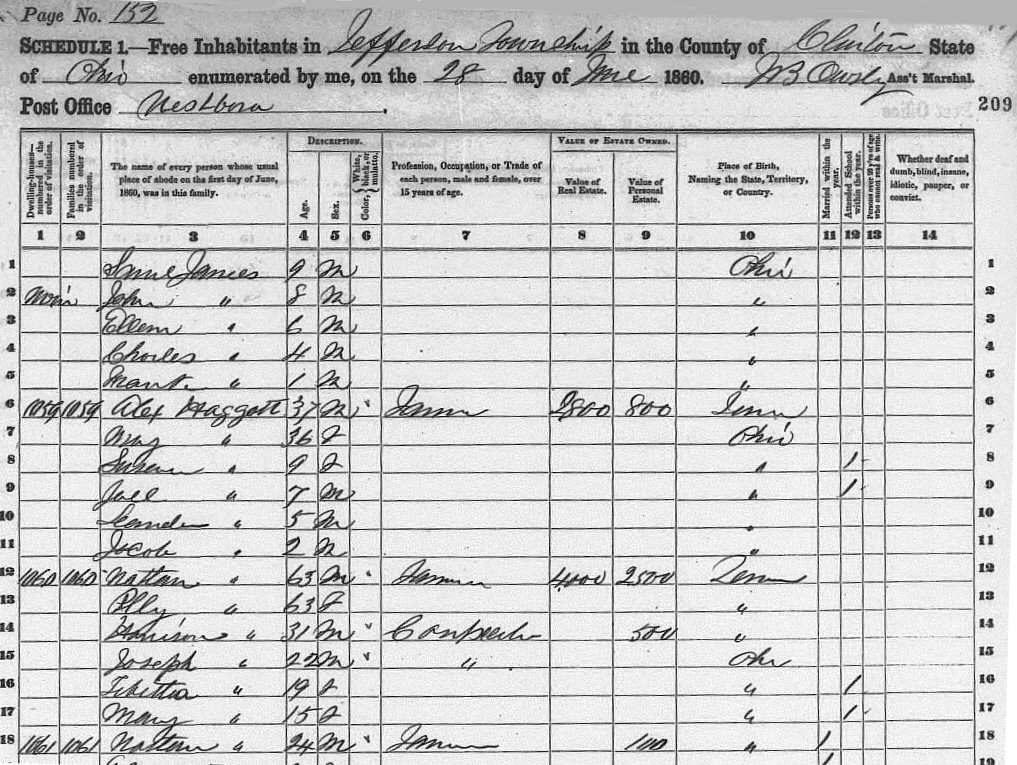 Page No. 152
SCHEDULE 1.—Free Inhabitants in Jefferson Township in the County of Clinton State
of Ohio enumerated by me, on the 28 day of June 1860. Ass't Marshal.
Post Office Westboro
209
DESCRIPTION. VALUE OF ESTATE OWNED.
Dwelling-houses—numbered in the order of visitation. Families numbered in the order of visitation. The name of every person whose usual place of abode on the first day of June, 1860, was in this family. Age. Sex. Color, {White, black, or mulatto. Profession, Occupation, or Trade of each person, male and female, over 15 years of age. Value of Real Estate. Value of Personal Estate. Place of Birth, Naming the State, Territory, or Country. Married within the year. Attended School within the year. Persons over 20 y'rs of age who cannot read & write. Whether deaf and dumb, blind, insane, idiotic, pauper, or convict.
1 2 3 4 5 6 7 8 9 10 11 12 13 14
1 James 9 M Ohio 1
2 John " 8 M " 2
3 " 6 M " 3
4 Charles " 4 M " 4
5 " 1 M " 5
6 1059 1059 Alex Haggott 37 M 2800 800 Tenn 6
7 Mary " 36 f Ohio 7
8 " 9 f " 1 8
9 Joel " 7 M " 1 9
10 " 5 M " 10
11 Jacob " 2 M " 11
12 1060 1060 Nattan " 63 M Farmer 4000 2500 Tenn 12
13 Polly " 63 f " 13
14 Harrison " 31 M 500 " 14
15 Joseph " 22 M " Ohi 15
16 " 19 f " 1 16
17 Mary " 15 f " 1 17
18 1061 1061 Nattan " 24 M 100 " 1 18
19